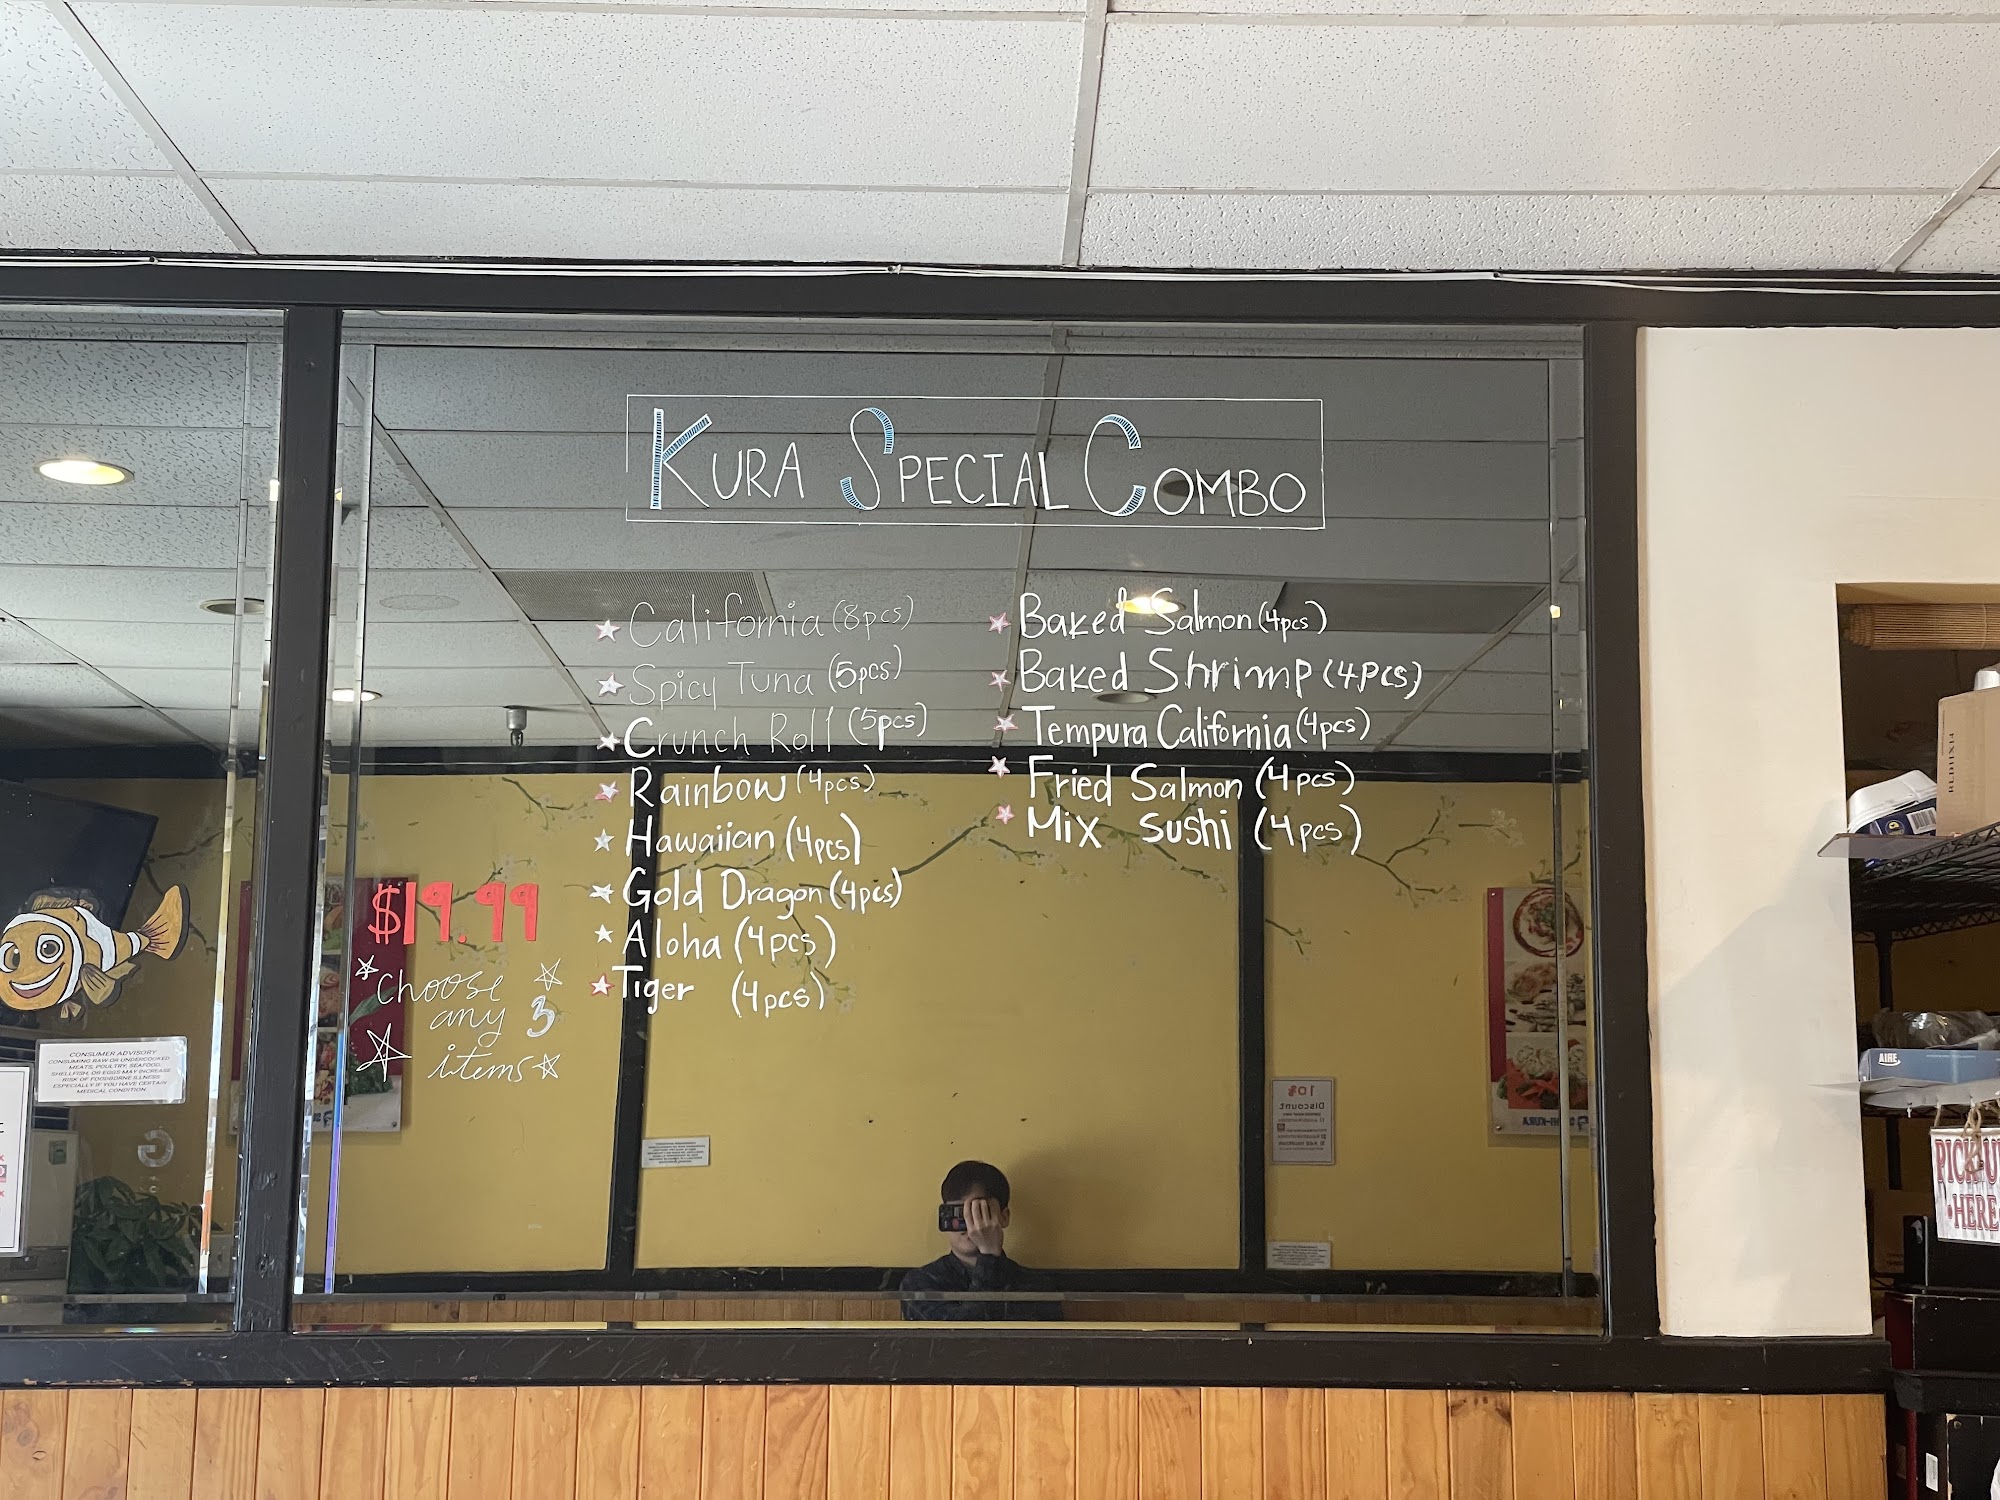 KURA SPECIAL COMBO
California (8pcs)
Spicy Tuna (5pcs)
Crunch Roll (5pcs)
Rainbow (4pcs)
Hawaiian (4pcs)
Gold Dragon (4pcs)
Aloha (4pcs)
Tiger (4pcs)
Baked Salmon (4pcs)
Baked Shrimp (4pcs)
Tempura California (4pcs)
Fried Salmon (4pcs)
Mix Sushi (4pcs)
$19.99
choose
any 3
items
CONSUMER ADVISORY
CONSUMING RAW OR UNDERCOOKED
MEATS, POULTRY, SEAFOOD,
SHELLFISH, OR EGGS MAY INCREASE
RISK OF FOODBORNE ILLNESS
ESPECIALLY IF YOU HAVE CERTAIN
MEDICAL CONDITION.
10%
Discount
AIRE
PICK U
HERE